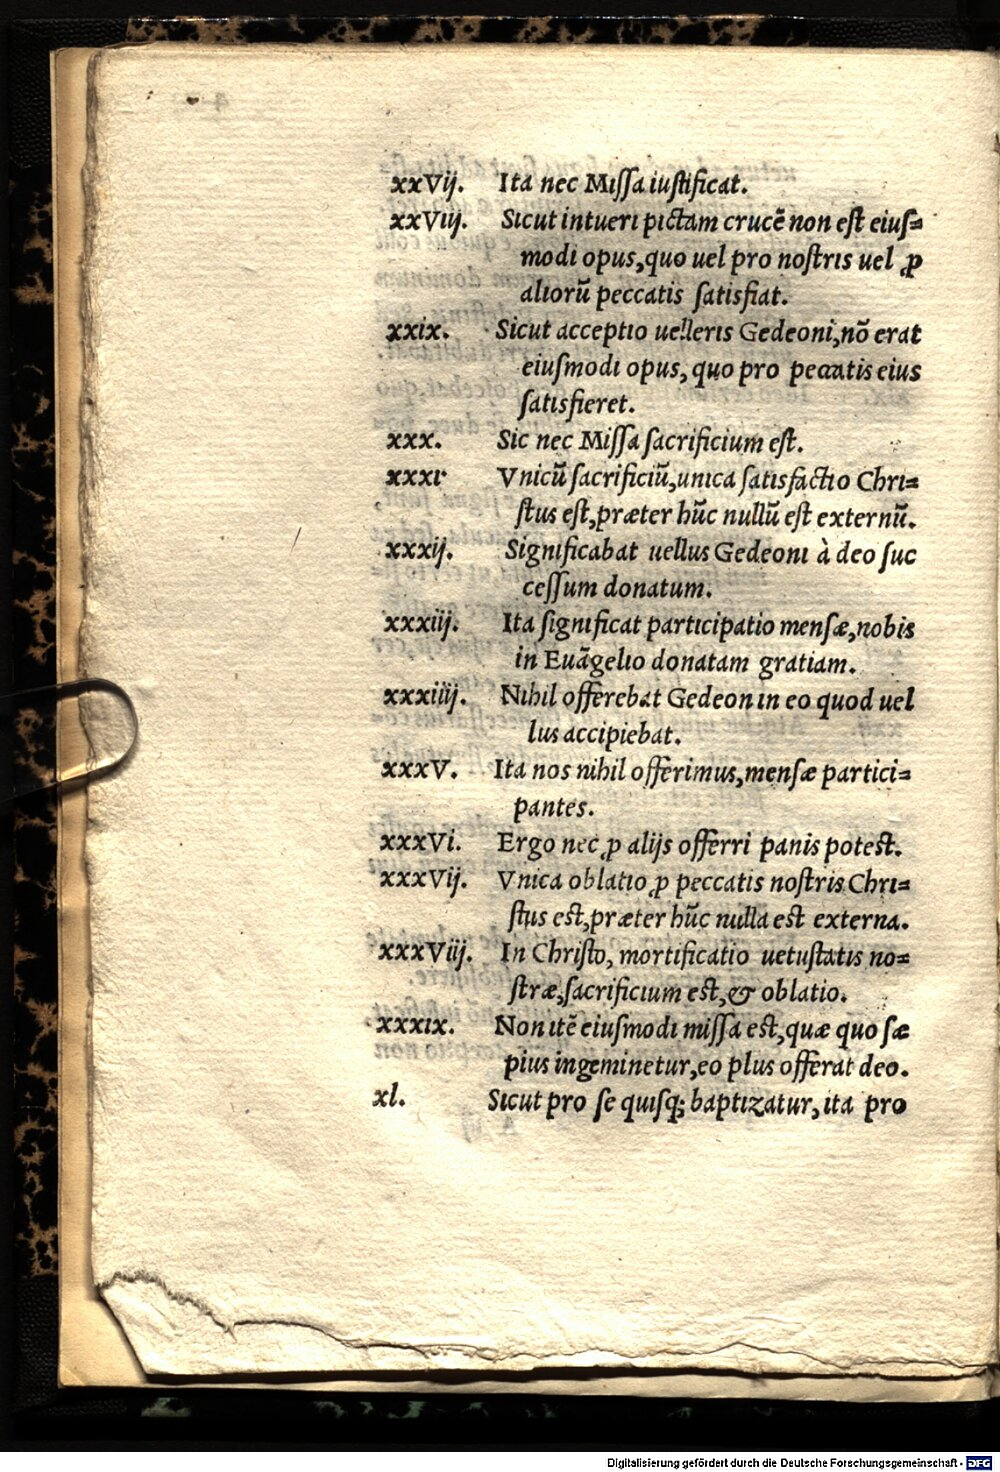 xxVij. Ita nec Miſſa iuſtificat.
xxViij. Sicut intueri pictam crucē non eſt eiuſ=
modi opus, quo uel pro noſtris uel ꝓ
aliorū peccatis ſatisfiat.
xxix. Sicut acceptio uelleris Gedeoni, nō erat
eiuſmodi opus, quo pro peccatis eius
ſatisfieret.
xxx. Sic nec Miſſa ſacrificium eſt.
xxxi Vnicū ſacrificiū, unica ſatisfactio Chri=
ſtus eſt, præter hūc nullū eſt externū.
xxxij. Significabat uellus Gedeoni à deo ſuc
ceſſum donatum.
xxxiij. Ita ſignificat participatio menſæ, nobis
in Euāgelio donatam gratiam.
xxxiiij. Nihil offerebat Gedeon in eo quod uel
lus accipiebat.
xxxV. Ita nos nihil offerimus, menſæ partici=
pantes.
xxxVi. Ergo nec ꝓ alijs offerri panis poteſt.
xxxVij. Vnica oblatio ꝓ peccatis noſtris Chri=
ſtus eſt, præter hūc nulla eſt externa.
xxxViij. In Chriſto, mortificatio uetuſtatis no=
ſtræ, ſacrificium eſt, & oblatio.
xxxix. Non itē eiuſmodi miſſa eſt, quæ quo ſæ
pius ingeminetur, eo plus offerat deo.
xl. Sicut pro ſe quiſq; baptizatur, ita pro
Digitalisierung gefördert durch die Deutsche Forschungsgemeinschaft - DFG